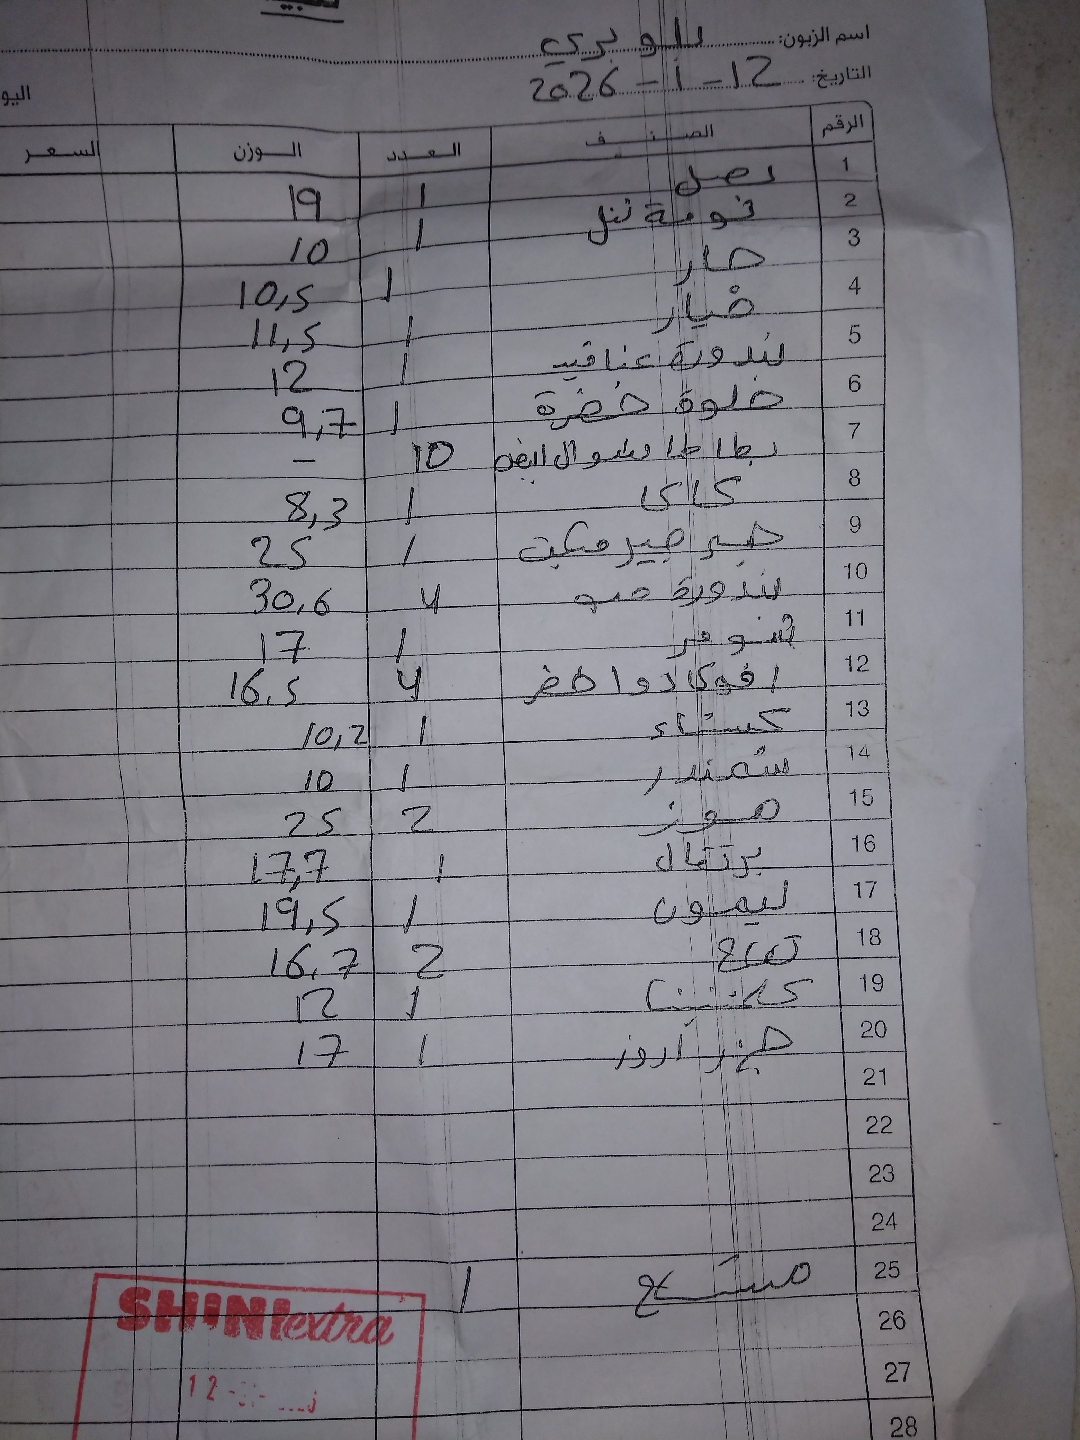 اسم الزبون: بلو بري
التاريخ: 12-1-2026
اليو
الرقم الصنف العدد الوزن السعر
1 بصل 1 19
2 تومة تنل 1 10
3 حار 1 10,5
4 خيار 1 11,5
5 بندورة عناقيد 1 12
6 حلوة خضرة 1 9,7
7 بطاطا وشوال ابيض 10 –
8 كاكا 1 8,3
9 1 25
10 بندورة حبو 4 30,6
11 شومر 1 17
12 افوكادوا خضر 4 16,5
13 كستناء 1 10,2
14 شمندر 1 10
15 موز 2 25
16 برتقال 1 17,7
17 ليمون 1 19,5
18 تفاح 2 16,7
19 كلمنتينا 1 12
20 جزر اروز 1 17
21
22
23
24
25 مستح 1
26
27
28
SHINI extra
12